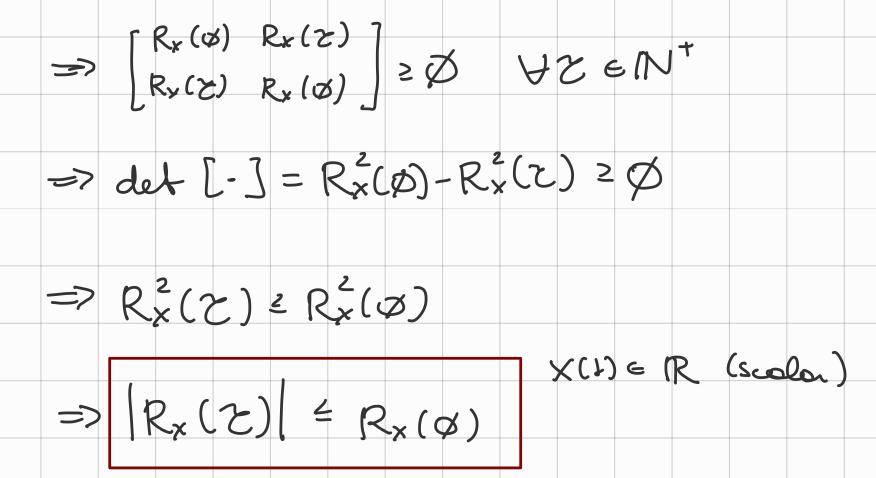 ⇒ [ Rx(∅) Rx(τ)
Rx(τ) Rx(∅) ] ≥ ∅ ∀τ ∈ ℕ⁺
⇒ det [·] = Rx²(∅) - Rx²(τ) ≥ ∅
⇒ Rx²(τ) ≤ Rx²(∅)
x(t) ∈ ℝ (scalar)
⇒ |Rx(τ)| ≤ Rx(∅)